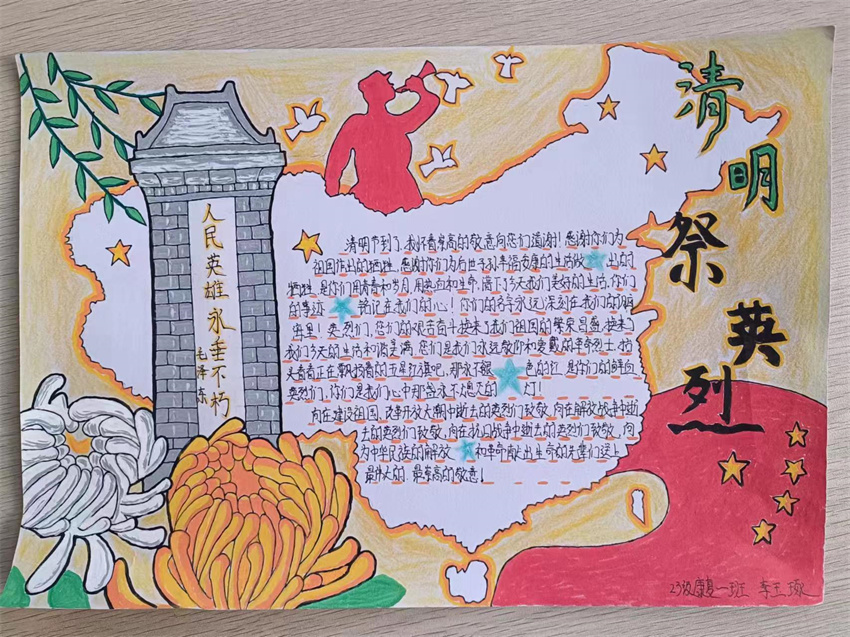 清明
祭
英
烈
人民英雄永垂不朽
毛泽东
清明节到了,我怀着崇高的敬意向您们道谢!感谢你们为
祖国作出的牺牲,感谢你们为后世子孙幸福安康的生活做出的
牺牲,是你们用青春和岁月,用热血和生命,留下了今天我们美好的生活,你们
的事迹铭记在我们的心!你们的名字永远深刻在我们的脑
海里!英烈们,您们的艰苦奋斗换来了我们祖国的繁荣昌盛,换来了
我们今天的生活和谐美满,您们是我们永远敬仰和爱戴的革命烈士,抬
头看看正在飘扬着的五星红旗吧,那永不
色的红,是你们的鲜血
英烈们,你们是我们心中那盏永不熄灭的灯!
向在建设祖国,改革开放大潮中逝去的英烈们致敬,向在解放战争中逝
去的英烈们致敬,向在抗日战争中逝去的英烈们致敬,向
为中华民族的解放和革命献出生命的先辈们送上
最伟大的、最崇高的敬意!
23级康复一班 李玉